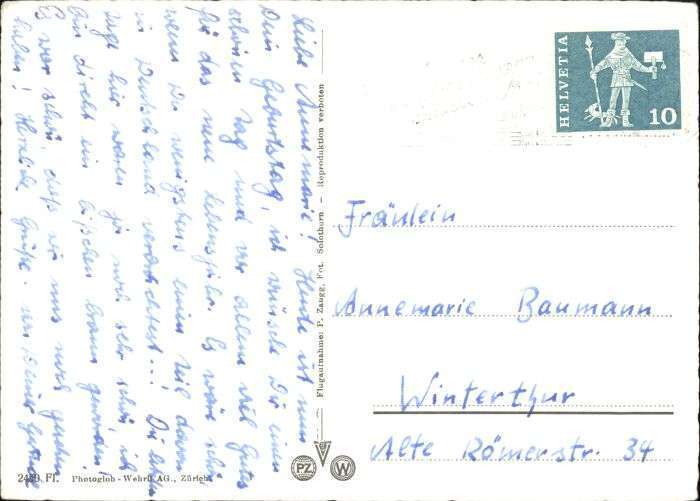 Liebe Annemarie! Heute ist nun
Dein Geburtstag, ich wünsche Dir einen
schönen Tag und vor allem viel Gutes
für das neue Lebensjahr. Es wäre schön
wenn Du wenigstens einen Teil davon
in Deutschland verbrächtest...! Die letzten
Tage hier waren ja noch sehr schön, ich
bin direkt ein bißchen braun geworden!
Es war schön, daß wir uns noch gesehen
haben! Herzliche Grüße. von Deiner
Flugaufnahme: P. Zaugg, Fot. Solothurn — Reproduktion verboten
HELVETIA
10
Fräulein
Annemarie Baumann
Winterthur
Alte Römerstr. 34
PZ
W
Photoglob-Wehrli AG., Zürich